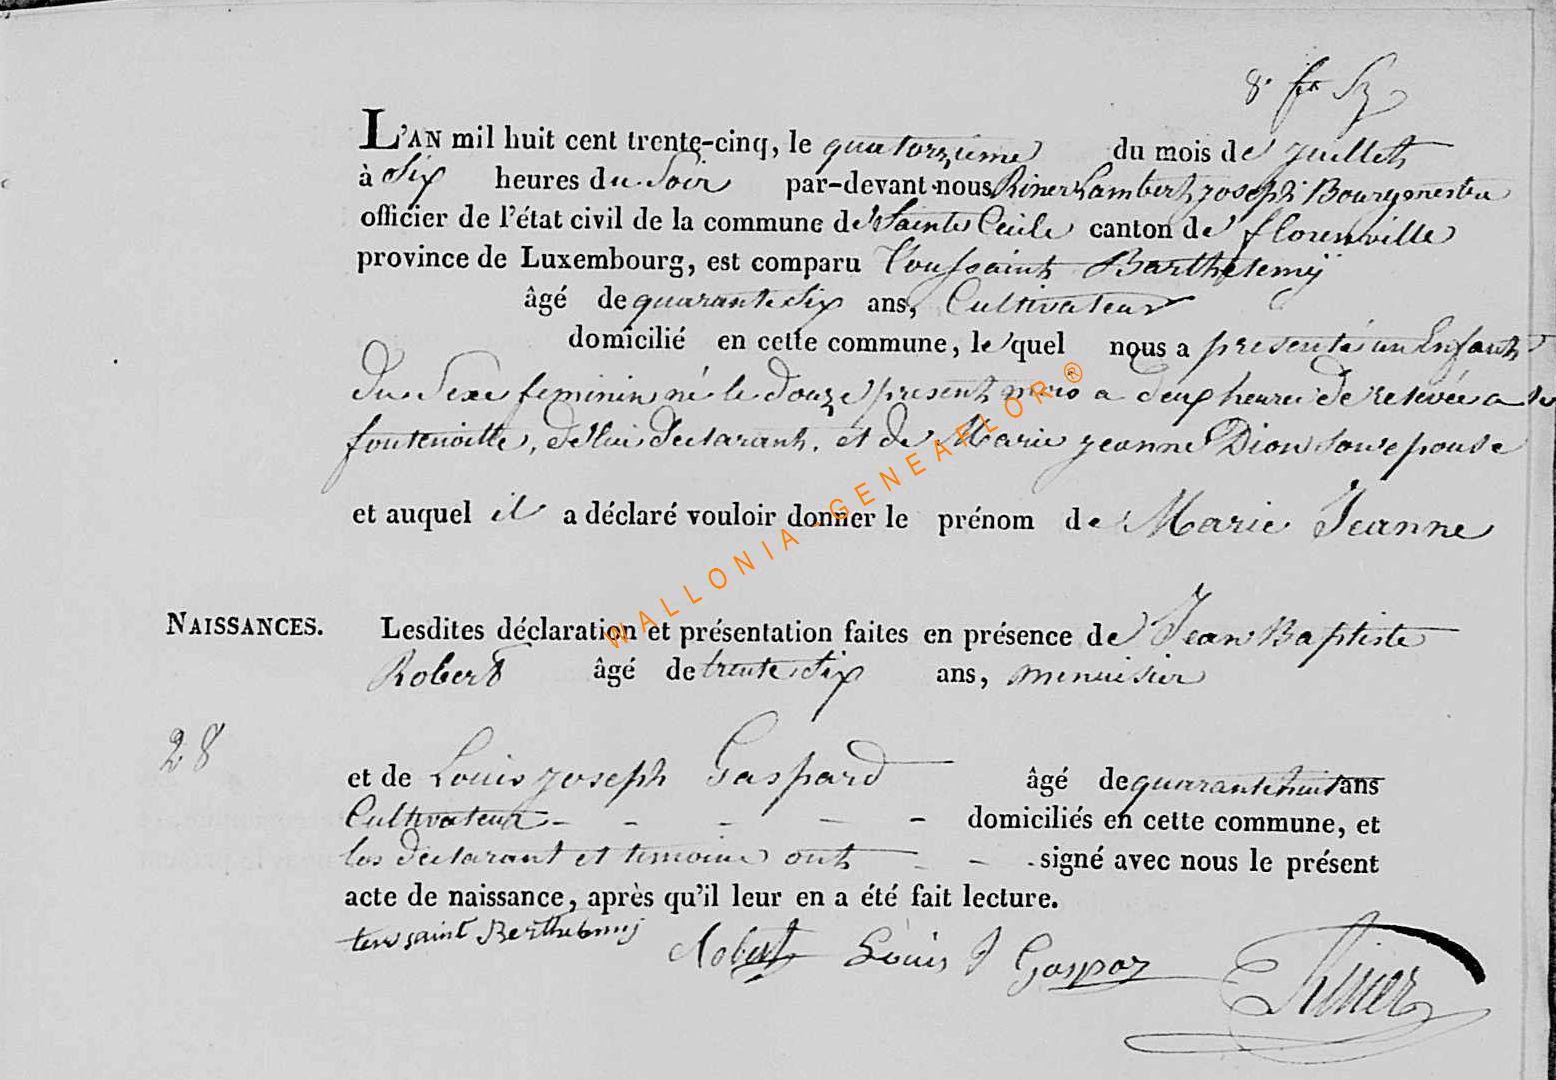 L'AN mil huit cent trente-cinq, le quatorzieme du mois de juillet
à Six heures du Soir par-devant nous Riner Lambert joseph Bourgmestre
officier de l'état civil de la commune de Sainte Cecile canton de florenville
province de Luxembourg, est comparu Toussaint Barthelemÿ
âgé de quarante Six ans, Cultivateur
domicilié en cette commune, le quel nous a presenté un Enfant
du Sexe feminin né le douze present mois a deux heures de relevée a
fontenoille, de lui declarant, et de Marie jeanne Dion Son epouse
et auquel il a déclaré vouloir donner le prénom de Marie Jeanne
NAISSANCES. Lesdites déclaration et présentation faites en présence de Jean Baptiste
Robert âgé de trente Six ans, menuisier
28
et de Louis joseph Gaspard âgé de quarante huit ans
Cultivateur - - - - - domiciliés en cette commune, et
les declarant et temoins ont - - signé avec nous le présent
acte de naissance, après qu'il leur en a été fait lecture.
toussaint Berthelemij Robert Louis J Gaspar Riner
WALLONIA-GENEAFLOR®